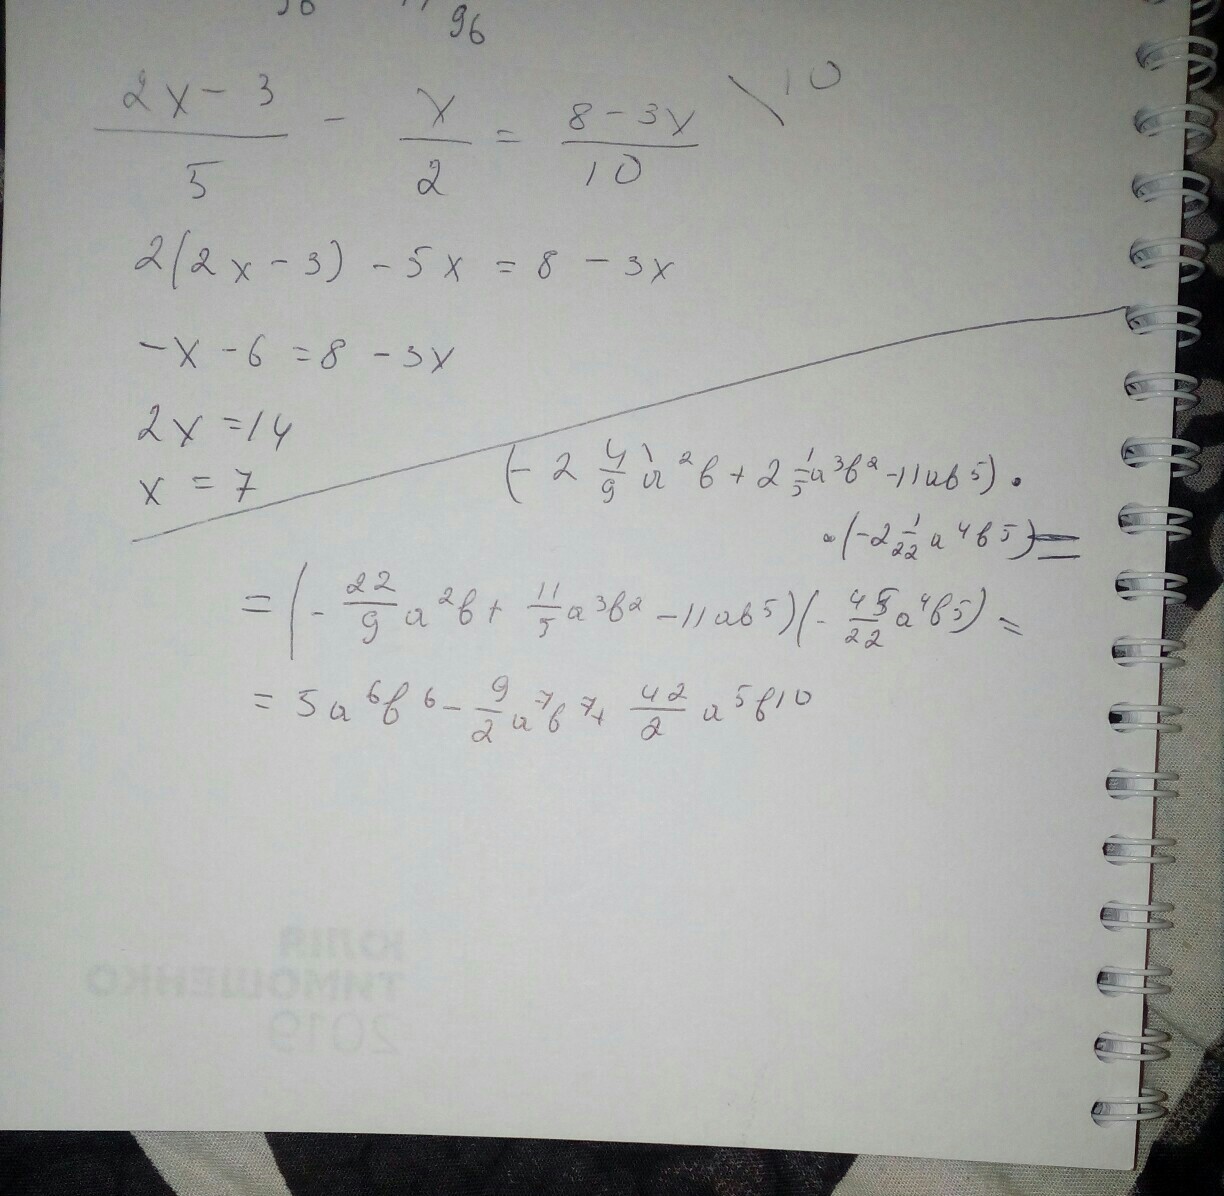 96
2x - 3 / 5 - x / 2 = 8 - 3x / 10 \10
2(2x - 3) - 5x = 8 - 3x
-x - 6 = 8 - 3x
2x = 14
x = 7
(- 2 4/9 a²b + 2 1/5 a³b² - 11ab⁵) ·
· (-2 1/22 a⁴b⁵) =
= (- 22/9 a²b + 11/5 a³b² - 11ab⁵)(- 45/22 a⁴b⁵) =
= 5a⁶b⁶ - 9/2 a⁷b⁷ + 42/2 a⁵b¹⁰
ЮЛІЯ
ТИМОШЕНКО
2019